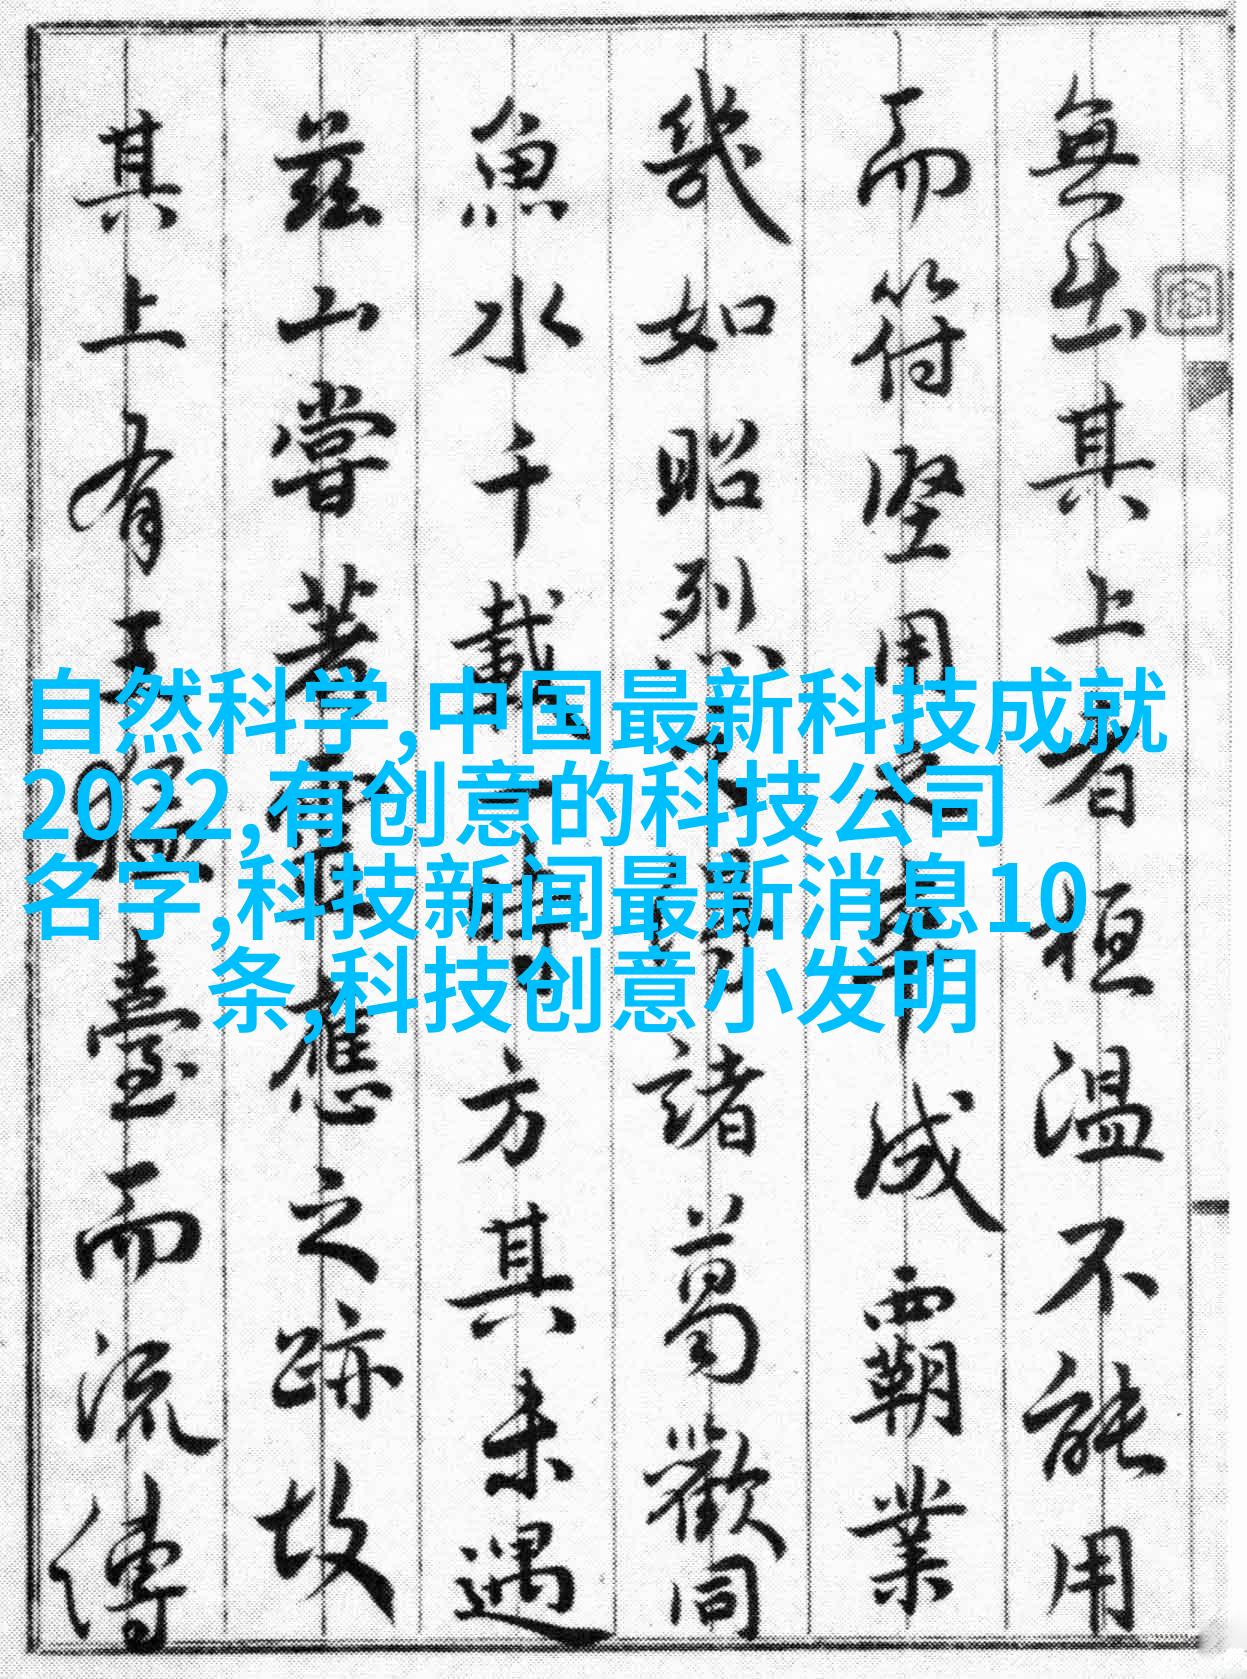 無出其上者桓温不能用
而符堅用之卒成霸業
幾如昭烈諸葛歡同
魚水千載一時方其未遇
茲山嘗著應之跡故
其上有王猛臺而流傳
自然科学,中国最新科技成就
2022,有创意的科技公司
名字,科技新闻最新消息10
条,科技创意小发明